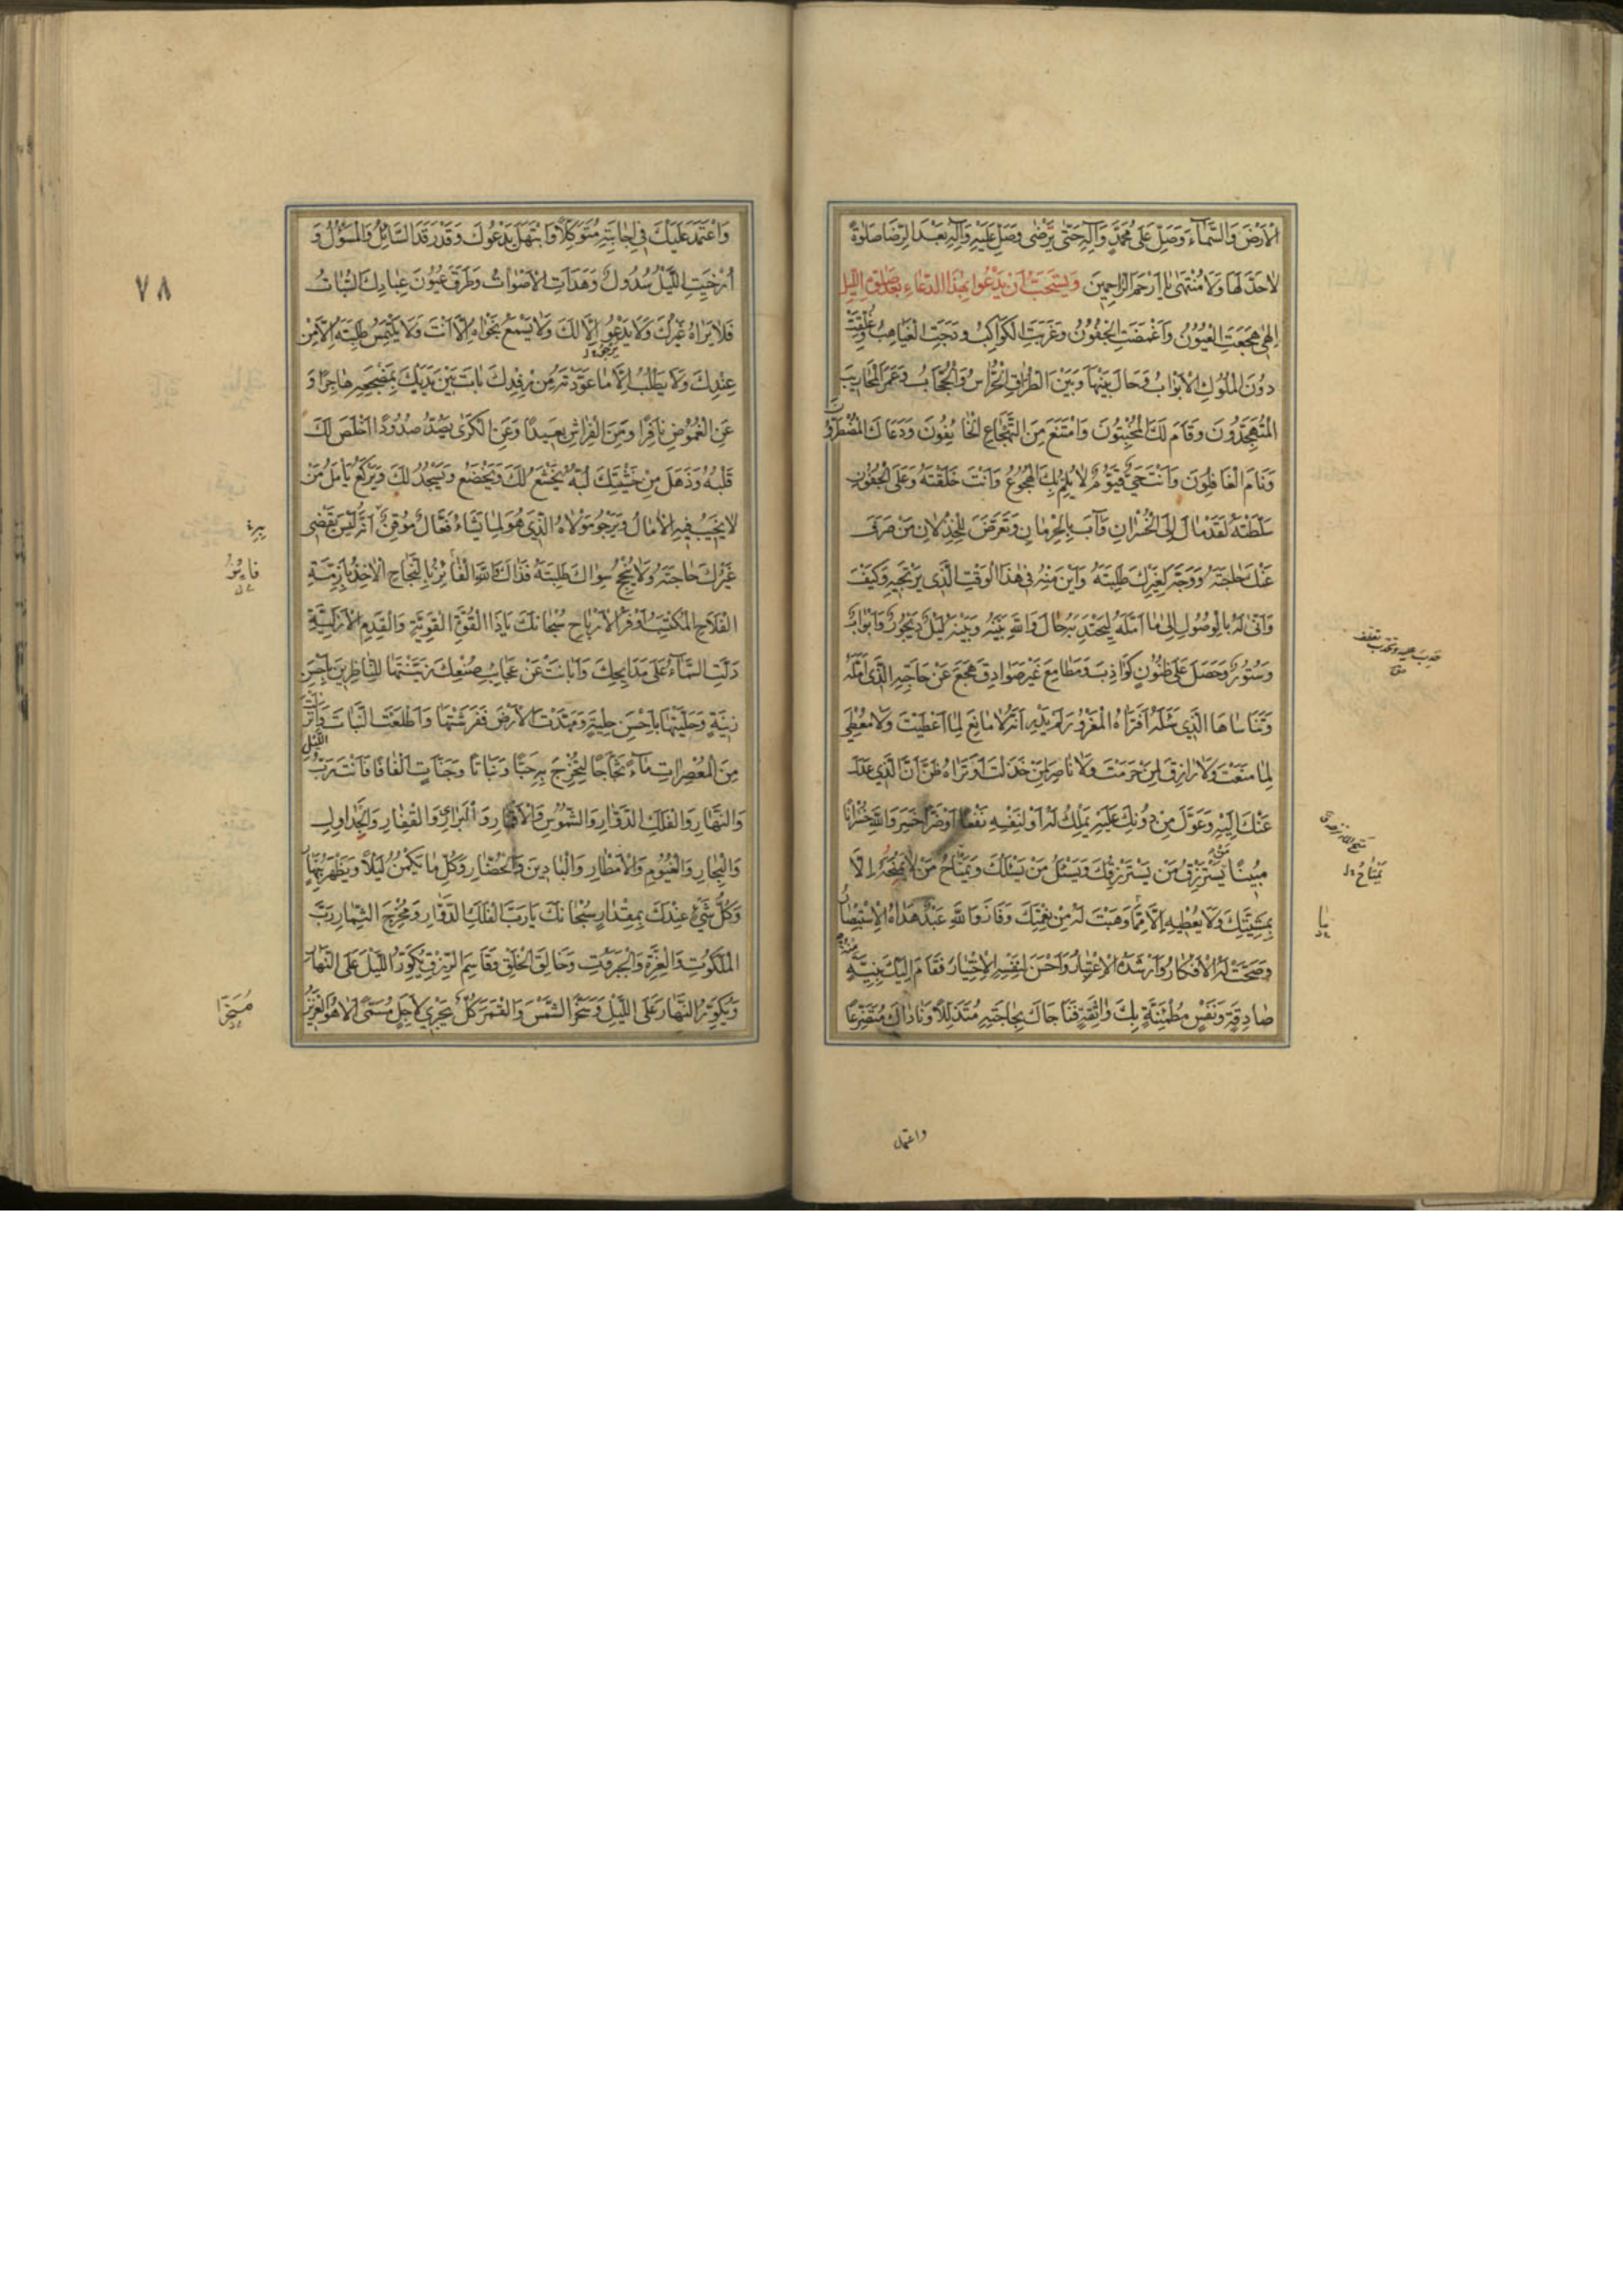 الْاَرْضَ وَالسَّمٰآءَ وَصَلِّ عَلٰى مُحَمَّدٍ وَآلِهِ حَتّٰى يَرْضٰى وَصَلِّ عَلَيْهِ وَآلِهِ بَعْدَ الرِّضَا صَلٰوةً
لٰا حَدَّ لَهَا وَلَا مُنْتَهٰى يٰا اَرْحَمَ الرّٰاحِمِينَ وَيُسْتَحَبُّ اَنْ يَدْعُوا بِهٰذَا الدُّعٰاءِ بَعْدَ صَلٰوةِ اللَّيْلِ
اِلٰهِي هَجَعَتِ الْعُيُونُ وَاَغْمَضَتِ الْجُفُونُ وَغَرَبَتِ الْكَوٰاكِبُ وَدَجَتِ الْغَيٰاهِبُ وَغُلِّقَتْ
دُونَ الْمُلُوكِ الْاَبْوٰابُ وَحَالَ بَيْنَهَا وَبَيْنَ الطُّرّٰاقِ الْحُرّٰاسُ وَالْحُجّٰابُ وَعَمَرَ الْمَحٰارِيبَ
الْمُتَهَجِّدُونَ وَقٰامَ لَكَ الْمُخْبِتُونَ وَامْتَنَعَ مِنَ التَّهْجٰاعِ الْخٰائِفُونَ وَدَعٰاكَ الْمُضْطَرُّونَ
وَنَامَ الْغَافِلُونَ وَاَنْتَ حَيٌّ قَيُّومٌ لٰا يُلِمُّ بِكَ الْهُجُوعُ وَاَنْتَ خَلَقْتَهُ وَعَلَى الْجُفُونِ
سَلَّطْتَهُ لَقَدْ مٰالَ اِلَى الْخُسْرٰانِ وَآبَ بِالْحِرْمٰانِ وَتَعَرَّضَ لِلْخِذْلَانِ مَنْ صَرَفَ
عَنْكَ حٰاجَتَهُ وَوَجَّهَ لِغَيْرِكَ طَلِبَتَهُ وَاَيْنَ مِنْهُ فِي هٰذَا الْوَقْتِ الَّذِي يَرْتَجِيهِ وَكَيْفَ
وَاَنّٰى لَهُ بِالْوُصُولِ اِلٰى مٰا اَمَّلَهُ لِيَجْتَدِيَهُ حَالَ وَاللّٰهِ بَيْنَهُ وَبَيْنَهُ لَيْلٌ دَيْجُورٌ وَاَبْوٰابٌ
وَسُتُورٌ وَحَصَلَ عَلٰى ظُنُونٍ كَوٰاذِبَ وَمَطٰامِعَ غَيْرِ صَوٰادِقَ وَهَجَعَ عَنْ حَاجَتِهِ الَّذِي اَمَّلَهُ
وَتَنَاسٰاهَا الَّذِي سَئَلَهُ اَفَتَرٰاهُ الْمَغْرُورُ لَمْ يَدْرِ اَنَّهُ لَا مٰانِعَ لِمٰا اَعْطَيْتَ وَلٰا مُعْطِيَ
لِمٰا مَنَعْتَ وَلٰا رٰازِقَ لِمَنْ حَرَمْتَ وَلٰا نٰاصِرَ لِمَنْ خَذَلْتَ اَوَ تَرٰاهُ ظَنَّ اَنَّ الَّذِي عَدَلَ
عَنْكَ اِلَيْهِ وَعَوَّلَ مِنْ دُونِكَ عَلَيْهِ يَمْلِكُ لَهُ اَوْ لِنَفْسِهِ نَفْعًا اَوْ ضَرًّا خَسِرَ وَاللّٰهِ خُسْرٰانًا
مُبِينًا يَسْتَرْزِقُ مَنْ يَسْتَرْزِقُكَ وَيَسْئَلُ مَنْ يَسْئَلُكَ وَيَمْتٰاحُ مَنْ لٰا يَمِيحُهُ اِلّٰا
بِمَشِيَّتِكَ وَلَا يُعْطِيهِ اِلّٰا مِمّٰا وَهَبْتَ لَهُ مِنْ نِعْمَتِكَ وَفَازَ وَاللّٰهِ عَبْدٌ هَدٰاهُ الْاِسْتِبْصٰارُ
وَصَحَّتْ لَهُ الْاَفْكَارُ وَاَرْشَدَهُ الْاِعْتِبٰارُ وَاَحْسَنَ لِنَفْسِهِ الْاِخْتِيٰارَ فَقٰامَ اِلَيْكَ بِنِيَّةٍ مِنْهُ
صٰادِقَةٍ وَنَفْسٍ مُطْمَئِنَّةٍ بِكَ وٰاثِقَةٍ فَنَاجَاكَ بِحٰاجَتِهِ مُتَذَلِّلًا وَنٰادٰاكَ مُتَضَرِّعًا
يَمْتٰاحُ
واعتمد
٧٨
وَاعْتَمَدَ عَلَيْكَ فِي اِجٰابَتِهِ مُتَوَكِّلًا وَابْتَهَلَ يَدْعُوكَ وَقَدْ رَقَدَ السَّائِلُ وَالْمَسْؤُلُ وَ
اُرْخِيَتِ اللَّيْلُ سُدُولٌ وَهَدَاَتِ الْاَصْوٰاتُ وَطَرَقَ عُيُونَ عِبٰادِكَ السُّبٰاتُ
فَلَا يَرٰاهُ غَيْرُكَ وَلَا يَدْعُو اِلّٰا لَكَ وَلَا يَسْمَعُ نَجْوٰاهُ اِلّٰا اَنْتَ وَلَا يَلْتَمِسُ طَلِبَتَهُ اِلّٰا مِنْ
عِنْدِكَ وَلَا يَطْلُبُ اِلّٰا مٰا عَوَّدْتَهُ مِنْ رِفْدِكَ بٰاتَ بَيْنَ يَدَيْكَ بِمَضْجَعِهِ هٰاجِرًا وَ
عَنِ الْغُمُوضِ نَافِرًا وَمِنَ الْفِرٰاشِ بَعِيدًا وَعَنِ الْكَرٰى يَصُدُّ صُدُودًا اَخْلَصَ لَكَ
قَلْبُهُ وَذَهَلَ مِنْ خَشْيَتِكَ لُبُّهُ يَخْشَعُ لَكَ وَيَخْضَعُ وَيَسْجُدُ لَكَ وَيَرْكَعُ يَأْمُلُ مَنْ
لَا يَخِيبُ فِيهِ الْاٰمٰالُ وَيَرْجُو مَوْلَاهُ الَّذِي هُوَ لِمٰا يَشٰاءُ فَعّٰالٌ مُوقِنٌ اَنَّهُ لَيْسَ يَقْضِي
غَيْرُكَ حٰاجَتَهُ وَلَا يُنْجِحُ سِوٰاكَ طَلِبَتَهُ فَذٰاكَ وَاللّٰهِ الْفٰائِزُ بِالنَّجٰاحِ الْاٰخِذُ بِاَزِمَّةِ
الْفَلَاحِ الْمُكْتَسِبُ اَوْفَرَ الْاَرْبٰاحِ سُبْحٰانَكَ يٰا ذَا الْقُوَّةِ الْقَوِيَّةِ وَالْقِدَمِ الْاَزَلِيَّةِ
دَلَّتِ السَّمٰآءُ عَلٰى مَدَايِحِكَ وَاَبَانَتْ عَنْ عَجٰايِبِ صُنْعِكَ زَيَّنْتَهٰا لِلنّٰاظِرِينَ بِاَحْسَنِ
زِينَةٍ وَحَلَّيْتَهٰا بِاَحْسَنِ حِلْيَةٍ وَمَهَّدْتَ الْاَرْضَ فَفَرَشْتَهٰا وَاَطْلَعْتَ النَّبٰاتَ وَاَنْزَلْتَ
مِنَ الْمُعْصِرٰاتِ مٰآءً ثَجّٰاجًا لِتُخْرِجَ بِهِ حَبًّا وَنَبَاتًا وَجَنَّاتٍ اَلْفٰافًا فَاَنْتَ رَبُّ اللَّيْلِ
وَالنَّهٰارِ وَالْفَلَكِ الدَّوّٰارِ وَالشُّمُوسِ وَالْاَقْمٰارِ وَالْبَرٰارِي وَالْقِفٰارِ وَالْجَدٰاوِلِ
وَالْبِحٰارِ وَالْغُيُومِ وَالْاَمْطٰارِ وَالْبٰادِينَ وَالْحُضّٰارِ وَكُلِّ مٰا يَكْمُنُ لَيْلًا وَيَظْهَرُ بِنَهٰارٍ
وَكُلُّ شَيْءٍ عِنْدَكَ بِمِقْدٰارٍ سُبْحٰانَكَ يَا رَبَّ الْفَلَكِ الدَّوّٰارِ وَمُخْرِجَ الثِّمٰارِ رَبَّ
الْمَلَكُوتِ وَالْعِزَّةِ وَالْجَبَرُوتِ وَخَالِقَ الْخَلْقِ وَقٰاسِمَ الرِّزْقِ يُكَوِّرُ اللَّيْلَ عَلَى النَّهٰارِ
وَيُكَوِّرُ النَّهٰارَ عَلَى اللَّيْلِ وَسَخَّرَ الشَّمْسَ وَالْقَمَرَ كُلٌّ يَجْرِي لِاَجَلٍ مُسَمًّى اَلَا هُوَ الْعَزِيزُ